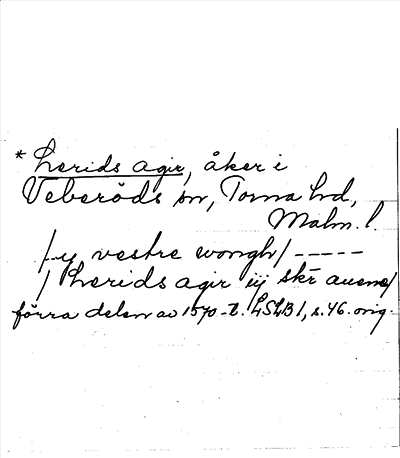 * Lerids agir, åker i
Veberöds sn, Torna hd,
Malm. l.
/ y vestre wongh / -----
/ Lerids agir iij skr auena /
förra delen av 1570-t. LSLB 1, s. 46. orig.